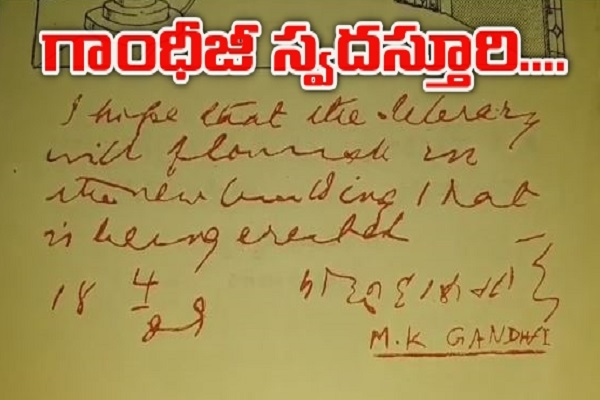 గాంధీజీ స్వదస్తూరి....
I hope that the literary
will flourish in
the new building that
is being erected
18 4
29
M.K GANDHI